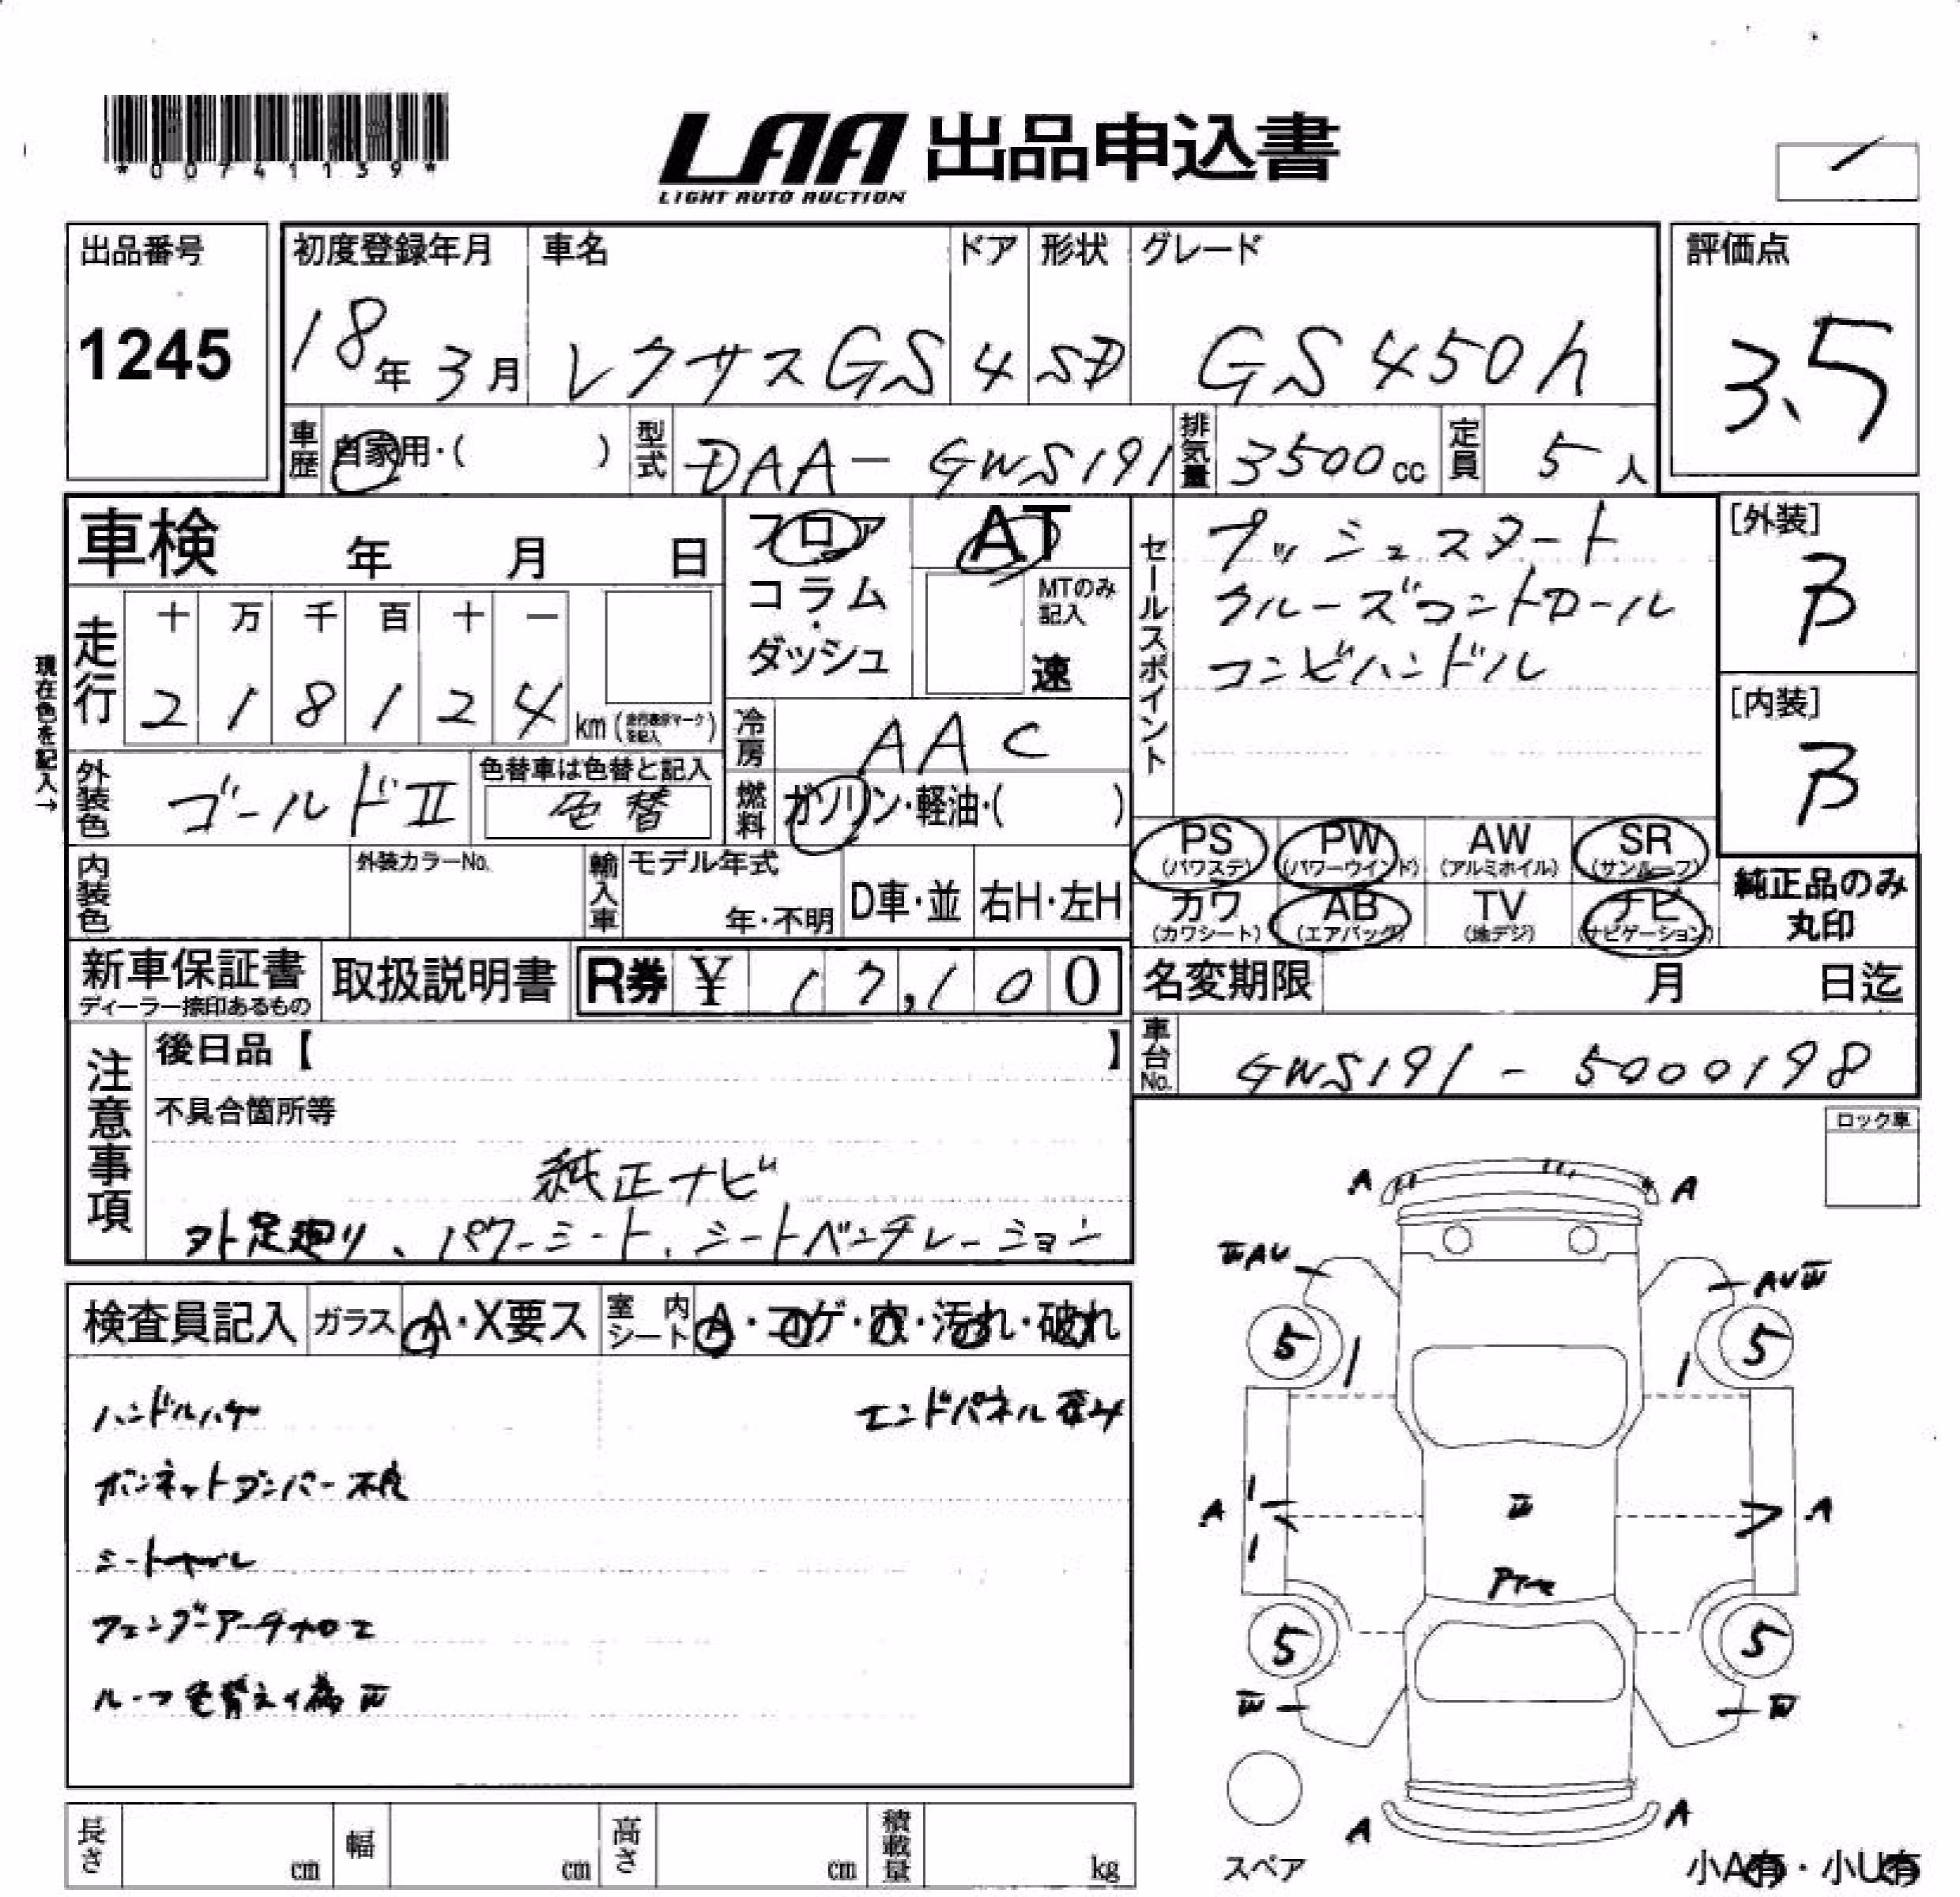 *00741139*
LAA 出品申込書
LIGHT AUTO AUCTION
出品番号
1245
初度登録年月
18年3月
車名
レクサスGS
ドア
4
形状
SD
グレード
GS450h
評価点
3.5
車歴
自家用・( )
型式
DAA-GWS191
排気量
3500cc
定員
5人
車検 年 月 日
フロア
コラム
・
ダッシュ
AT
MTのみ
記入
速
セールスポイント
プッシュスタート
クルーズコントロール
コンビハンドル
[外装]
B
[内装]
B
現在色を記入→
走行
十 万 千 百 十 一
2 1 8 1 2 4 km
冷房
AAC
外装色
ゴールドII
色替車は色替と記入
色替
燃料
ガソリン・軽油・( )
PS
(パワステ)
PW
(パワーウインド)
AW
(アルミホイル)
SR
(サンルーフ)
カワ
(カワシート)
AB
(エアバック)
TV
(地デジ)
ナビ
(ナビゲーション)
純正品のみ
丸印
内装色
外装カラーNo.
輸入車
モデル年式
年・不明
D車・並
右H・左H
新車保証書
ディーラー捺印あるもの
取扱説明書
R券 ¥ 17,100
名変期限 月 日迄
注意事項
後日品【 】
不具合箇所等
純正ナビ
外足廻り、パワーシート、シートベンチレーション
車台No.
GWS191-5000198
ロック車
検査員記入
ガラス
A・X要ス
室内
シート
A・コゲ・穴・汚れ・破れ
ハンドルハゲ
エンドパネル歪み
ボンネットダンパー不良
フェンダーアーチ加工
ルーフ色替え
A A
AU
AU
5 5
A A
5 5
A A
スペア
小A有・小U有
長さ cm
幅 cm
高さ cm
積載量 kg